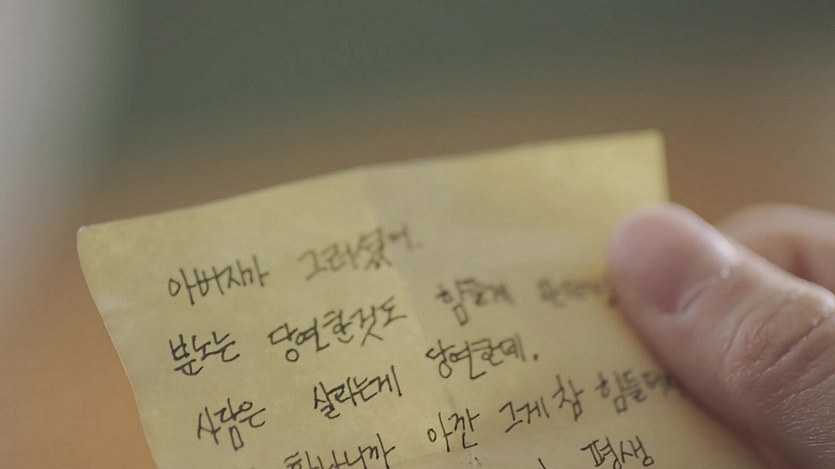 아버지가 그러셨어.
분노는 당연한것도 힘들게
사람은 살라는게 당연한데.
화나니까 아깐 그게 참 힘들더
평생